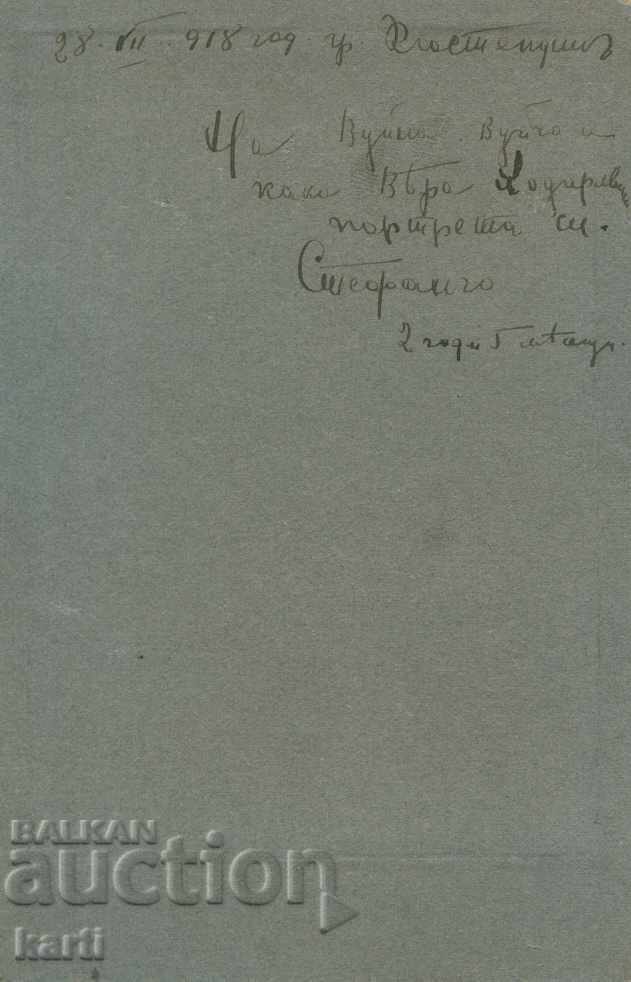 28. VII. 918 год. гр. Кюстендилъ
На Вуйна. Вуйчо и
кака Вѣра
портрета си.
Стефанчо
2 год и 5 мѣсеци.
BALKAN
auction
karti